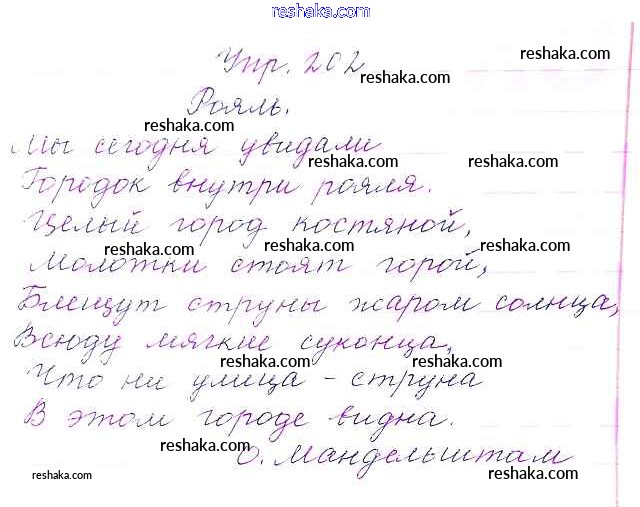 reshaka.com
Упр. 202
reshaka.com
reshaka.com
Рояль.
reshaka.com
Мы сегодня увидали
reshaka.com
reshaka.com
Городок внутри рояля.
Целый город костяной,
reshaka.com
reshaka.com
reshaka.com
Молотки стоят горой,
Блещут струны жаром солнца,
Всюду мягкие суконца,
reshaka.com
reshaka.com
Что ни улица - струна
В этом городе видна.
reshaka.com
О. Мандельштам
reshaka.com
reshaka.com